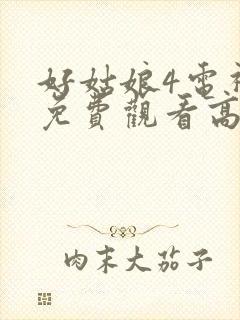 好姑娘4電視
免費觀看高
肉末大茄子